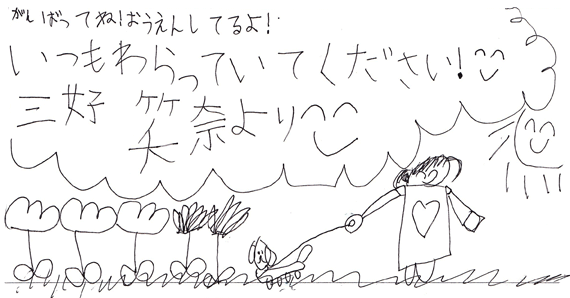 がんばってね!おうえんしてるよ!
いつもわらっていてください!
三好 笑奈より